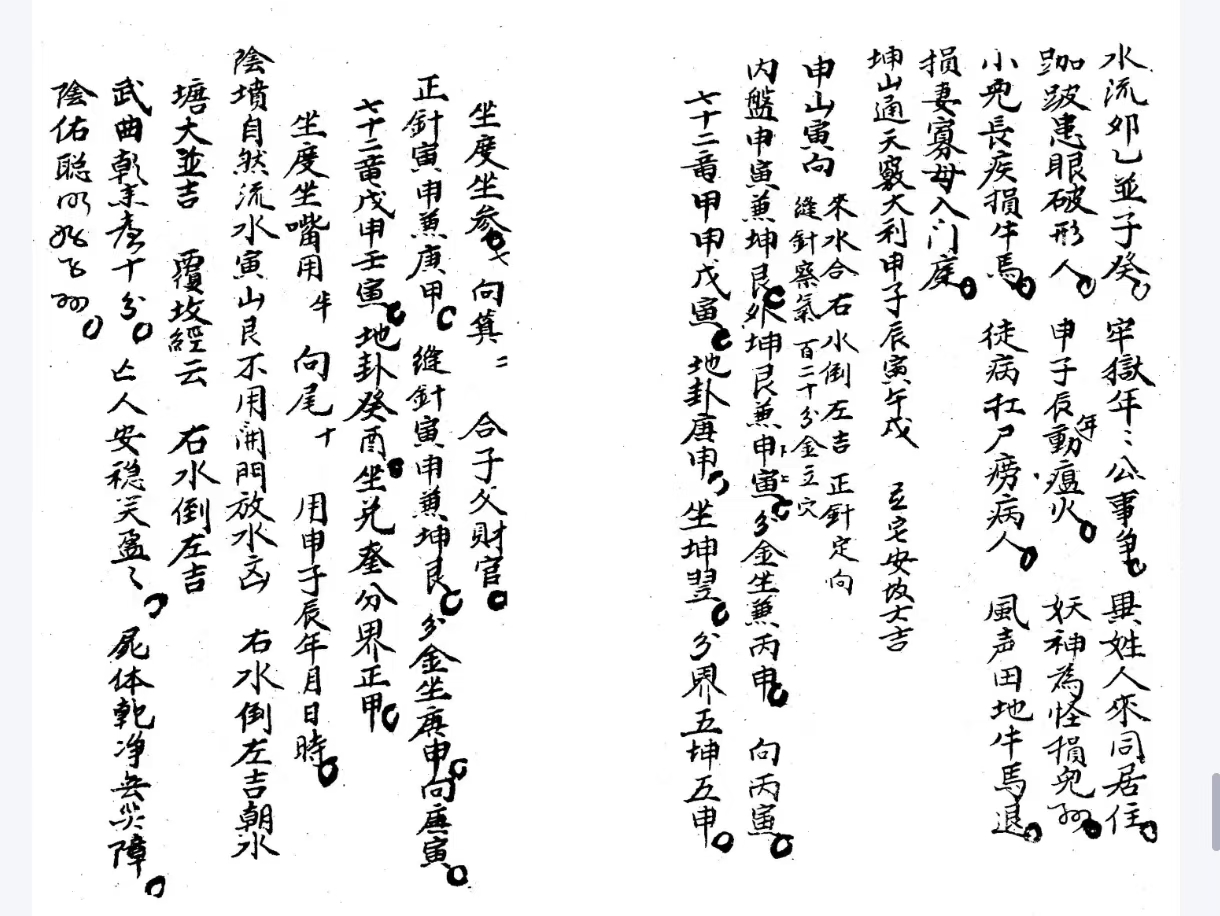 水流夘乙並子癸。牢獄年〻公事争。異姓人來同居住。
跏跛患眼破形人。申子辰年動瘟火。妖神為怪損兒孫。
小兒長疾損牛馬。徒病扛尸癆病人。風声田地牛馬退。
損妻寡母入门庭。
坤山通天竅大利申子辰寅午戌 立宅安坟大吉
申山寅向 來水合右水倒左吉 正針定向
縫針察氣 百二十分金立穴
内盤申寅兼坤艮。外坤艮兼申寅。分金坐兼丙申。向丙寅。
七十二竜甲申戊寅。地卦庚申。坐坤翌。分界五坤五申。
坐度坐參七 向箕二 合子父財官。
正針寅申兼庚甲。縫針寅申兼坤艮。分金坐庚申。向庚寅。
七十二竜戊申壬寅。地卦癸酉。坐兑奎分界正甲。
坐度坐嘴用半 向尾十 用申子辰年月日時。
陰墳自然流水寅山艮不用開門放水凶 右水倒左吉朝水
塘大並吉 覆坟經云 右水倒左吉
武曲朝來十分。亡人安稳笑盈〻。屍体乾净無災障。
陰佑聪明孫。